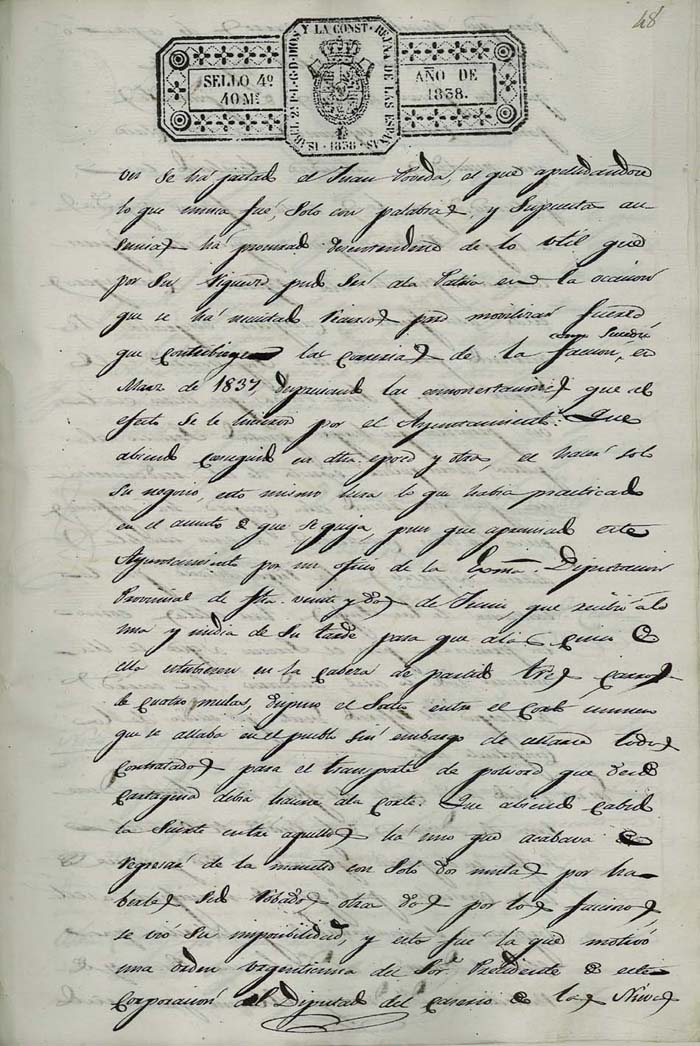 48
ISABEL 2ª P.L.G.D. DIOS Y LA CONST. REYNA DE LAS ESPAÑAS
SELLO 4º
40 Ms
AÑO DE
1838.
1838
se há jactado el Juan Poveda, el que
lo que nunca fué, solo con palabras y supuestas au-
sencias há procurado desentenderse de lo util que
por su pudo ser ala Patria en la ocasion
que se há necesitado recursos para movilizar fuerzas
que las correrias de la faccion, en
como sucedió
Marzo de 1837, despreciando las amonestaciones que al
efecto se le hicieron por el Ayuntamiento: Que
abiendo conseguido en otra epoca y otras, el hacer solo
su negocio, esto mismo sera lo que habia practicado
en el asunto de que se queja, pues que apremiado este
Ayuntamiento por un oficio de la Exma. Diputacion
Provincial de fha. veinte y dos de Junio, que recibió ála
una y media de su tarde para que alas cinco de
ella estubiesen en la cabeza de partido tres carros
de cuatro mulas, dispuso el sorteo entre el corto numero
que se allaba en el pueblo sin embargo de allarse todos
contratados para el transporte de polvora que desde
Cartagena debia hacerse ala Corte. Que abiendo cabido
la suerte entre aquellos há uno que acababa de
regresar de la mancha con solo dos mulas por ha-
berles sido robadas otras dos por los facciosos
se vió su imposibilidad, y esto fué la que motivó
una orden urgentisima del Sor. Presidente de esta
Corporacion al Diputado del camino de las Nieves